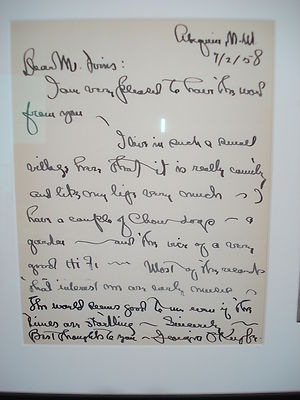 Abiquiu, N.M.
9/2/58
Dear Mr. Ivins:
I am very pleased to have this word
from you
I live in such a small
village here that it is really country
and like my life very much ~ I
have a couple of Chow dogs ~ a
garden ~ and the use of a very
good Hi Fi ~ Most of the records
that interest me are early music ~
The world seems good to me even if the
times are startling ~ Sincerely ~
Best thoughts to you ~ Georgia O'Keeffe